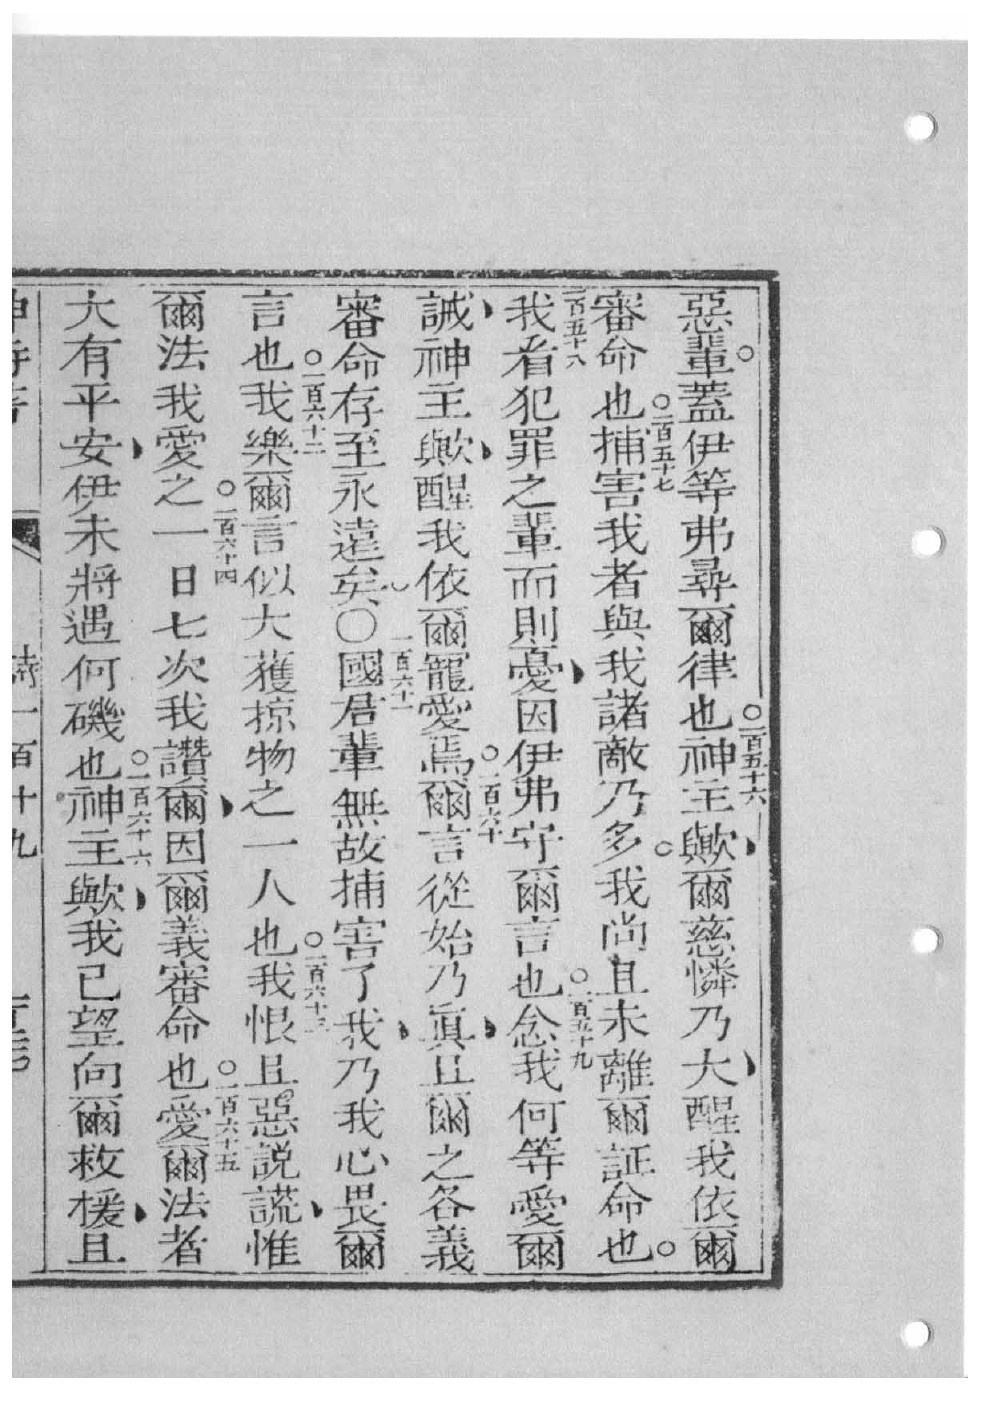 惡輩蓋伊等弗尋爾律也○一百五十六神主歟爾慈憐乃大醒我依爾
審命也○一百五十七捕害我者與我諸敵乃多我尚且未離爾証命也
一百五十八我看犯罪之輩而則憂因伊弗守爾言也○一百五十九念我何等愛爾
誡神主歟醒我依爾寵愛焉○一百六十爾言從始乃眞且爾之各義
審命存至永遠矣○一百六十一國君輩無故捕害了我乃我心畏爾
言也○一百六十二我樂爾言似大獲掠物之一人也○一百六十三我恨且惡說謊惟
爾法我愛之○一百六十四一日七次我讚爾因爾義審命也○一百六十五愛爾法者
大有平安伊未將遇何磯也○一百六十六神主歟我已望向爾救援且
神詩書 詩一百十九